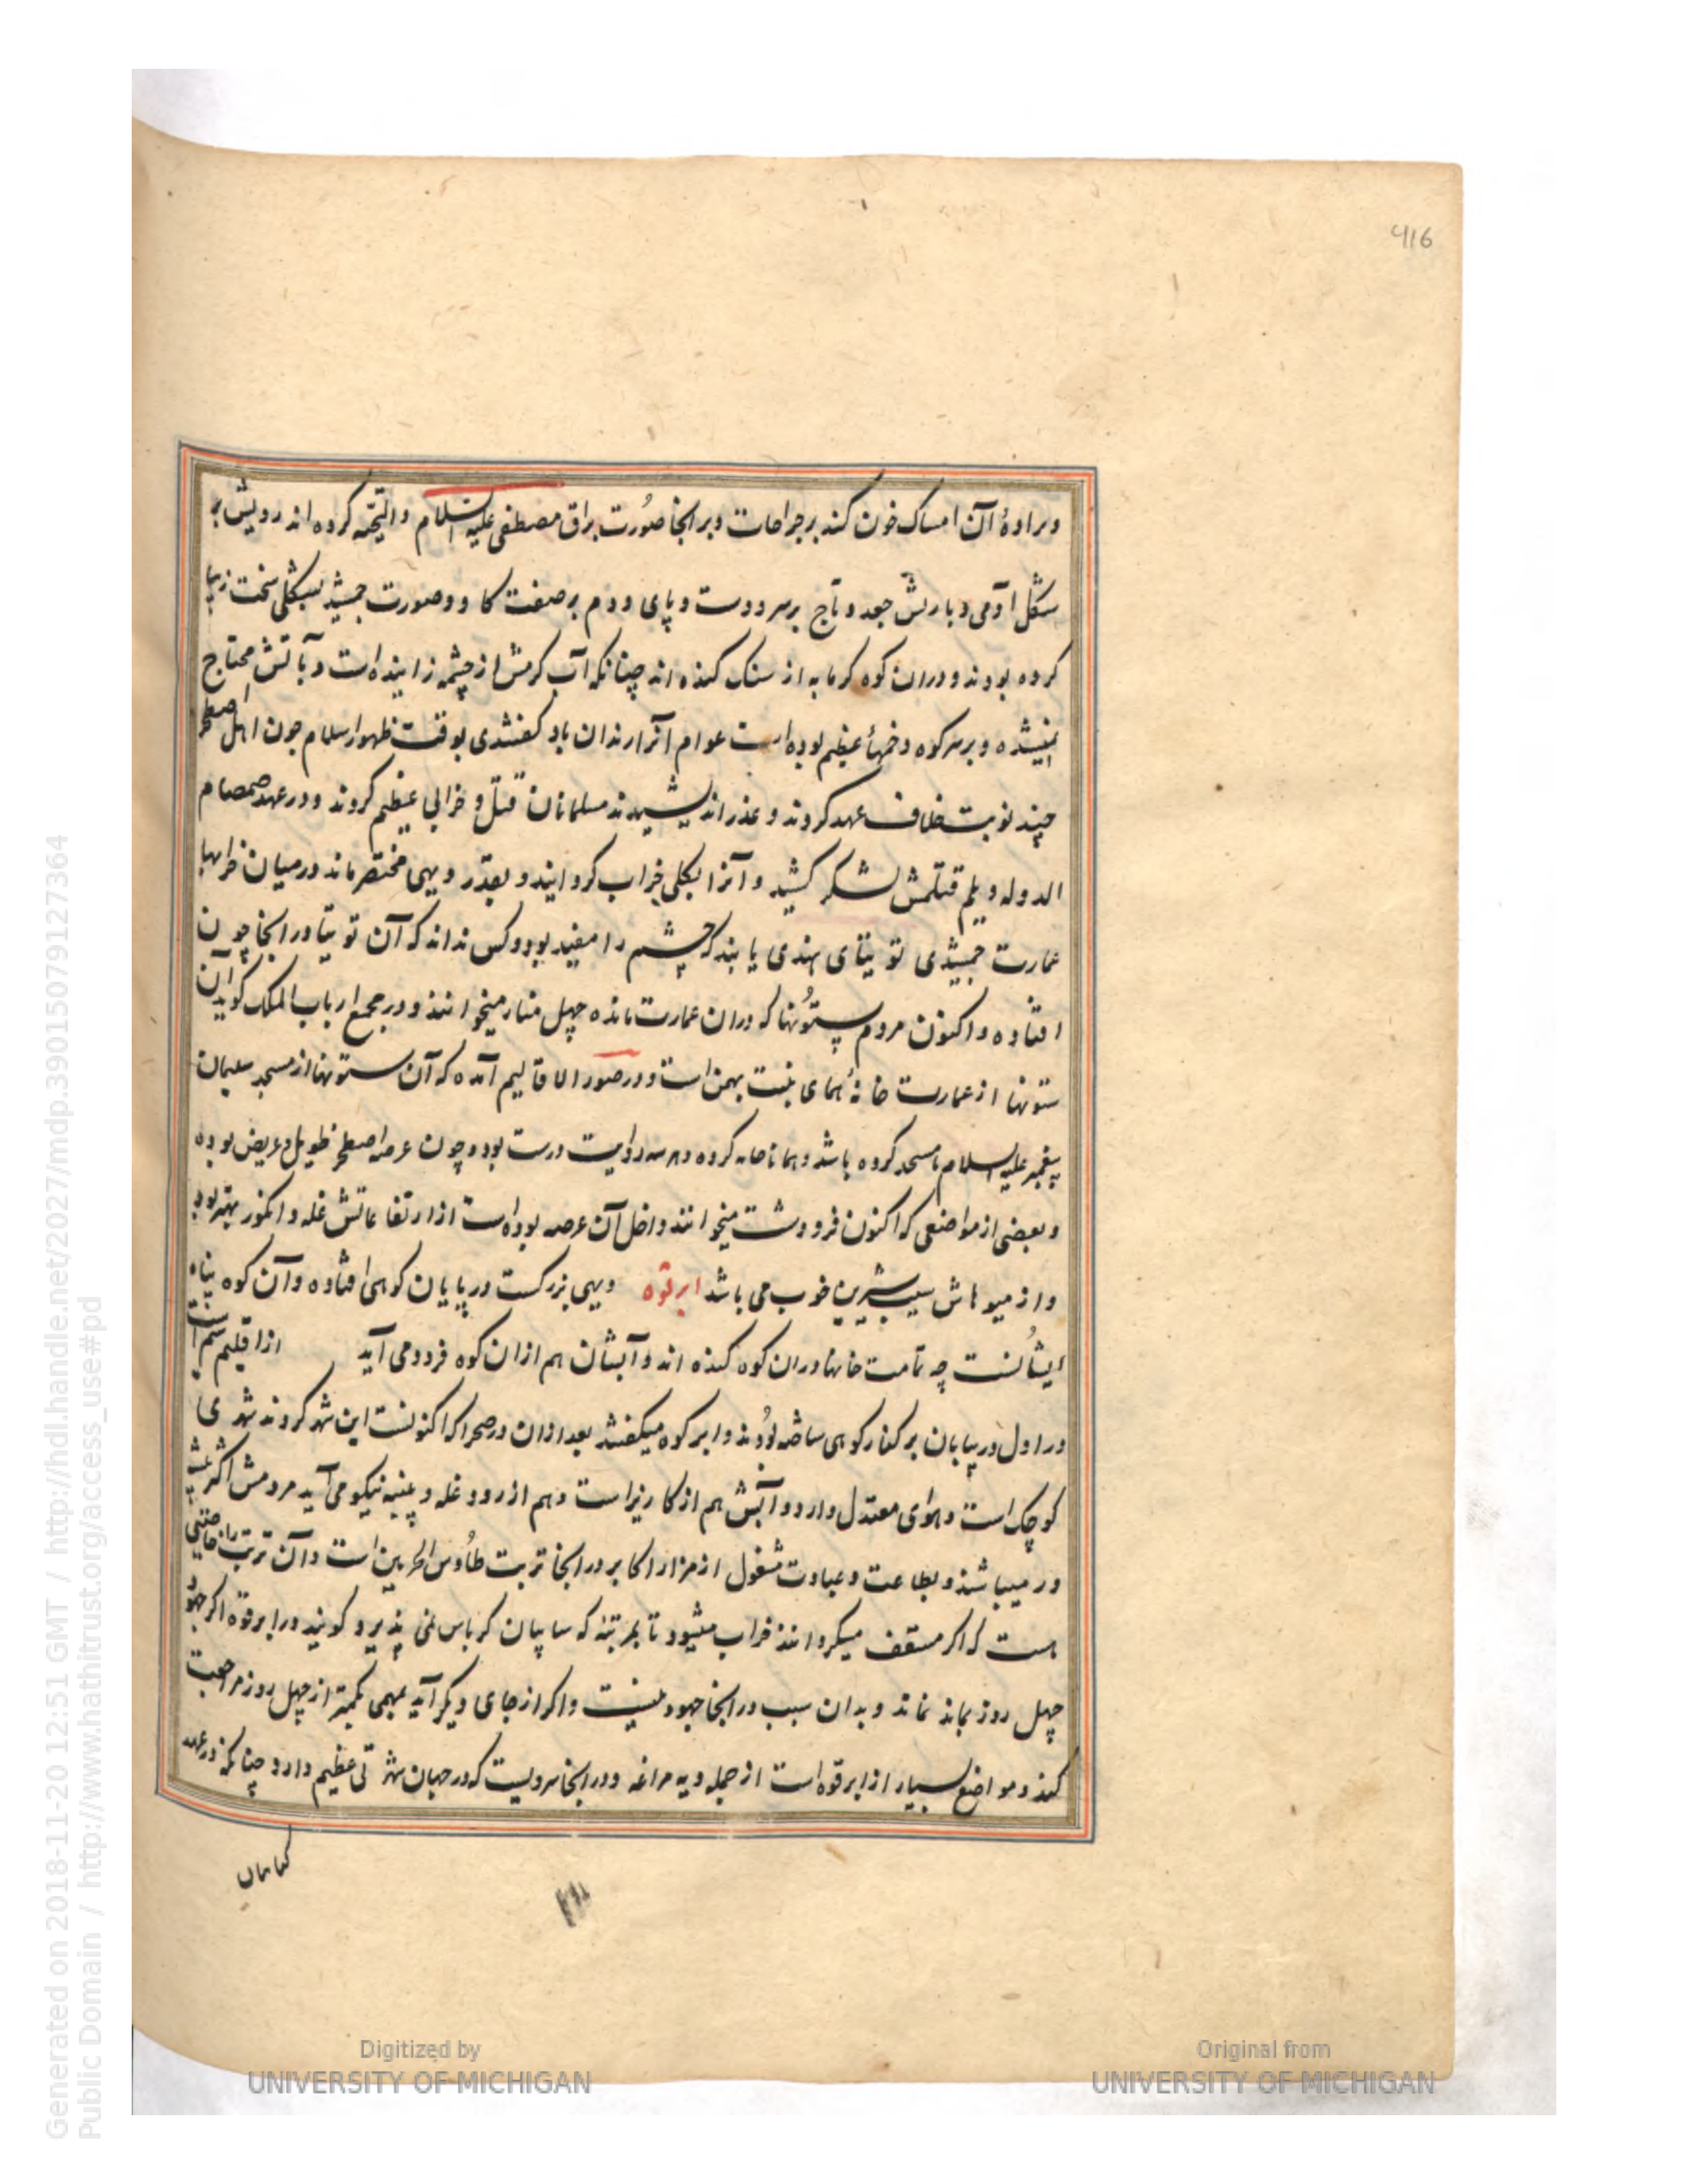 416
وبرادهٔ آن امساک خون کند بر جراحات و بر انجا صورت براق مصطفی علیه السلام و التحیّه کرده اند رویش بر
شکل آدمی و با ریش جعد و تاج بر سر و دست و پای و دم بر صفت کاو و صورت جمشید بشکلی سخت زیبا
کرده بودند و دران کوه کرمابه از سنک کنده اند چنانکه آب کرمش از چشمه زاینده است و بآتش محتاج
نمیشده و بر سر کوه دخمهٔا عظیم بوده است عوام آنرا زندان باد کفتندی بوقت ظهور اسلام چون اهل اصطخر
چند نوبت خلاف عهد کردند و غدر اندیشیدند مسلمانان قتل و خرابی عظیم کردند و در عهد صمصام
الدوله دیلم قتلمش لشکر کشید و آنرا بکلی خراب کردانید و بقدر دیهی مختصر ماند در میان خرابیها
عمارت جمشیدی توتیای هندی یابند که چشم را مفید بود و کس نداند که آن توتیا در انجا چون
افتاده و اکنون مردم ستونها که دران عمارت مانده چهل منار میخوانند و در مجمع ارباب الملک کوید آن
ستونها از عمارت خانهٔ همای بنت بهمن است و در صور الاقالیم آمده که آن ستونها از مسجد سلیمان
پیغمبر علیه السلام باشد و چون عرصه اصطخر طویل و عریض بوده
و بعضی از مواضعی که اکنون مرودشت میخوانند داخل آن عرصه بوده است از ارتفاعاتش غله و انکور بهتر بود
و از میوهاش سیب شیرین خوب می باشد ابرقوه دیهی بزرکست در پایان کوهی افتاده و آن کوه پناه
ایشانست چه تمامت خانها دران کوه کنده اند و آبشان هم ازان کوه فرود می آید از اقلیم سیم است
در اول در بیابان بر کنار کوهی ساخته بودند و ابر کوه میکفتند بعد ازان در صحرا که اکنونست این شهر کردند شهری
کوچک است و هوای معتدل دارد و آبش هم از کاریز است و هم از رود و غله و پنبه نیکو می آید مردمش اکثر پیشه
ور میباشند و بطاعت و عبادت مشغول از مزار اکابر در انجا تربت طاوس الحرمین است و آن تربت را خاصیتی
است که اکر مسقف میکردانند خراب میشود تا بمرتبه که سایبان کرباس نمی پذیرد و کویند در ابرقوه اکر جهود
چهل روز بماند نماند و بدان سبب در انجا جهود نیست و اکر از جای دیکر آید بمهمی کمتر از چهل روز مراجعت
کند و مواضع بسیار از ابرقوه است از جمله دیه مراغه و در انجا سرویست که در جهان شهرتی عظیم دارد چنانکه در عهد
کیانیان
Generated on 2018-11-20 12:51 GMT / http://hdl.handle.net/2027/mdp.39015079127364
Public Domain / http://www.hathitrust.org/access_use#pd
Digitized by
UNIVERSITY OF MICHIGAN
Original from
UNIVERSITY OF MICHIGAN